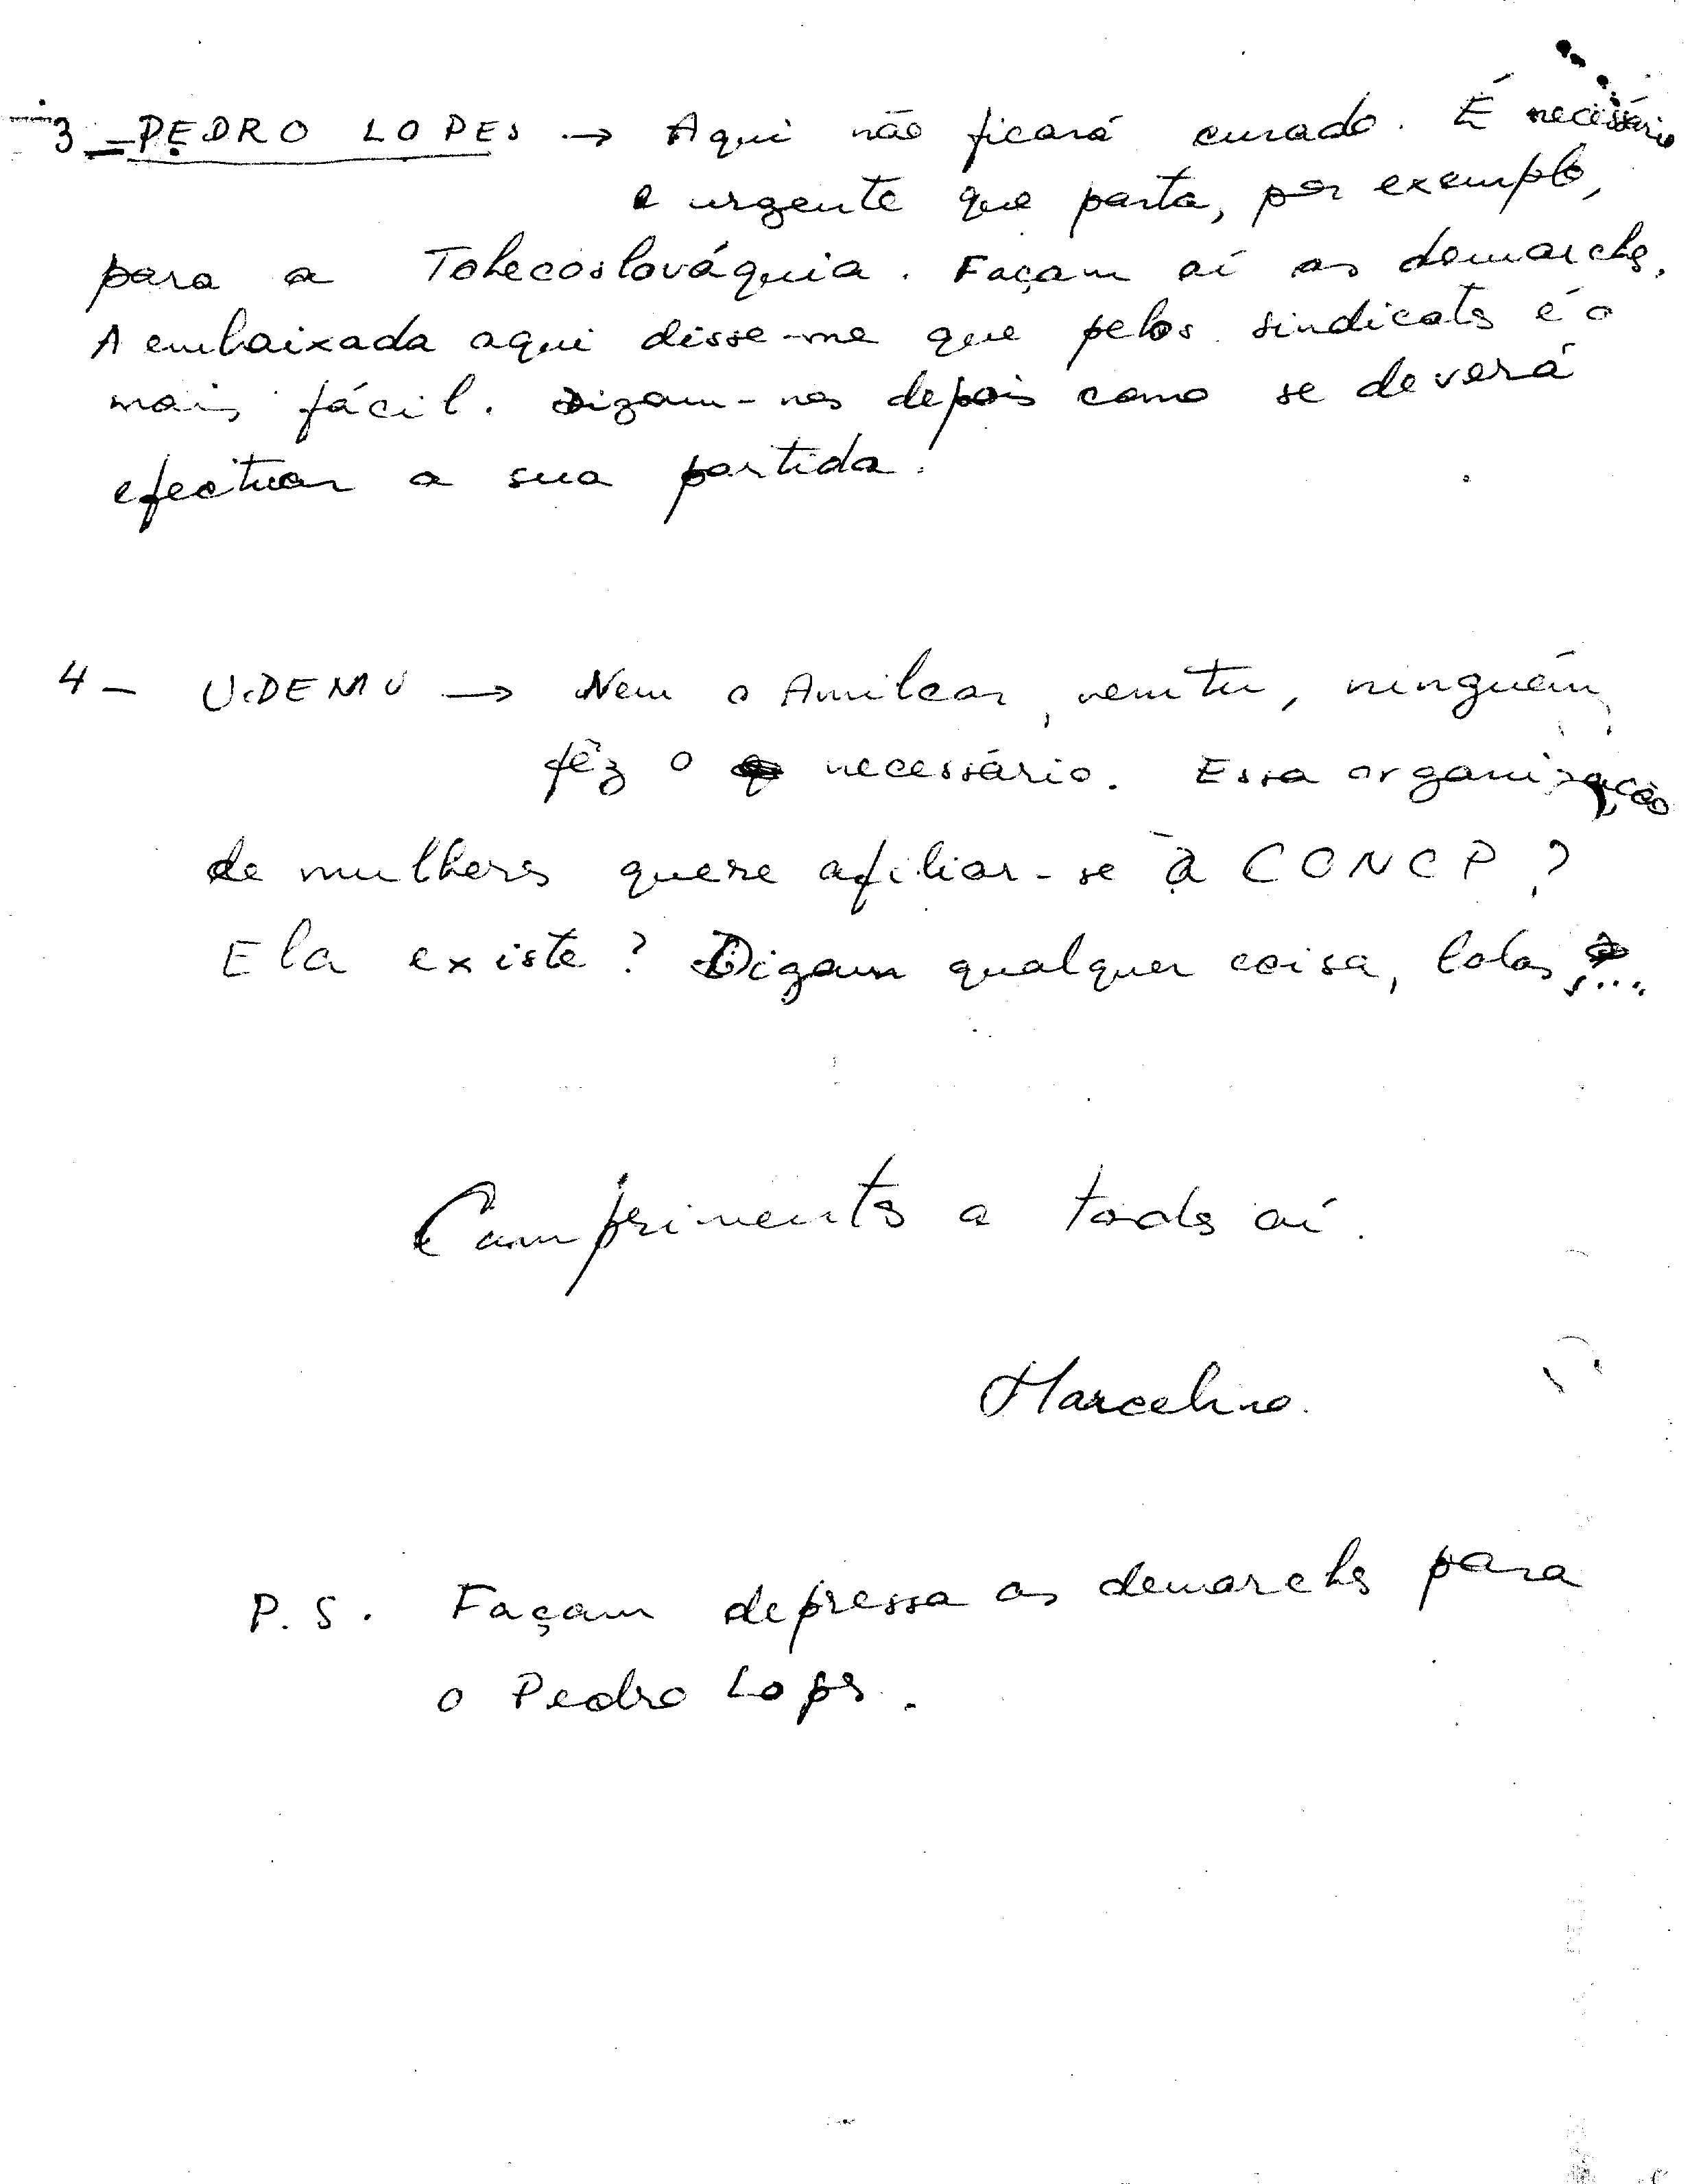 3 - PEDRO LOPES → Aqui não ficará curado. É necessário
e urgente que parta, por exemplo,
para a Tchecoslováquia. Façam aí as demarches.
A embaixada aqui disse-me que pelos sindicatos é o
mais fácil. Digam-nos depois como se deverá
efectuar a sua partida.
4 - UDEMU → Nem o Amilcar, nem tu, ninguém
fêz o necessário. Essa organização
de mulheres quere afiliar-se à CONCP?
Ela existe? Digam qualquer coisa,
Cumprimentos a todos aí.
Marcelino.
P.S. Façam depressa as demarches para
o Pedro Lopes.